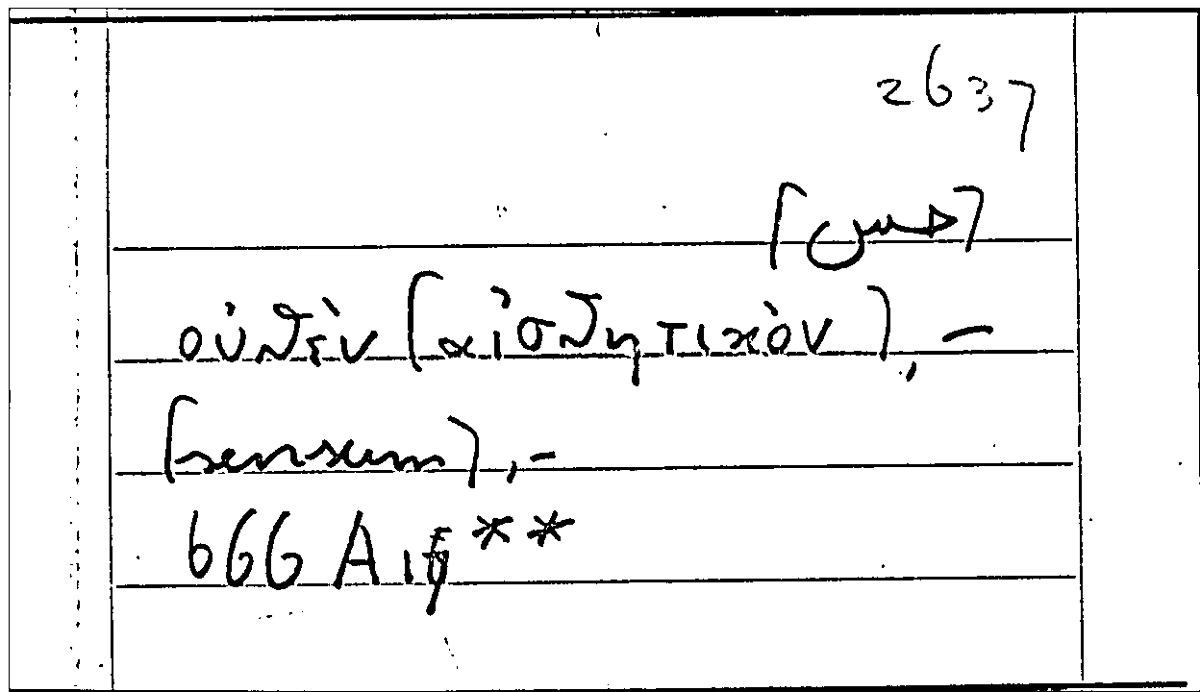 2637
[حس]
οὐθὲν [αἰσθητικὸν], –
[sensum], –
666 A